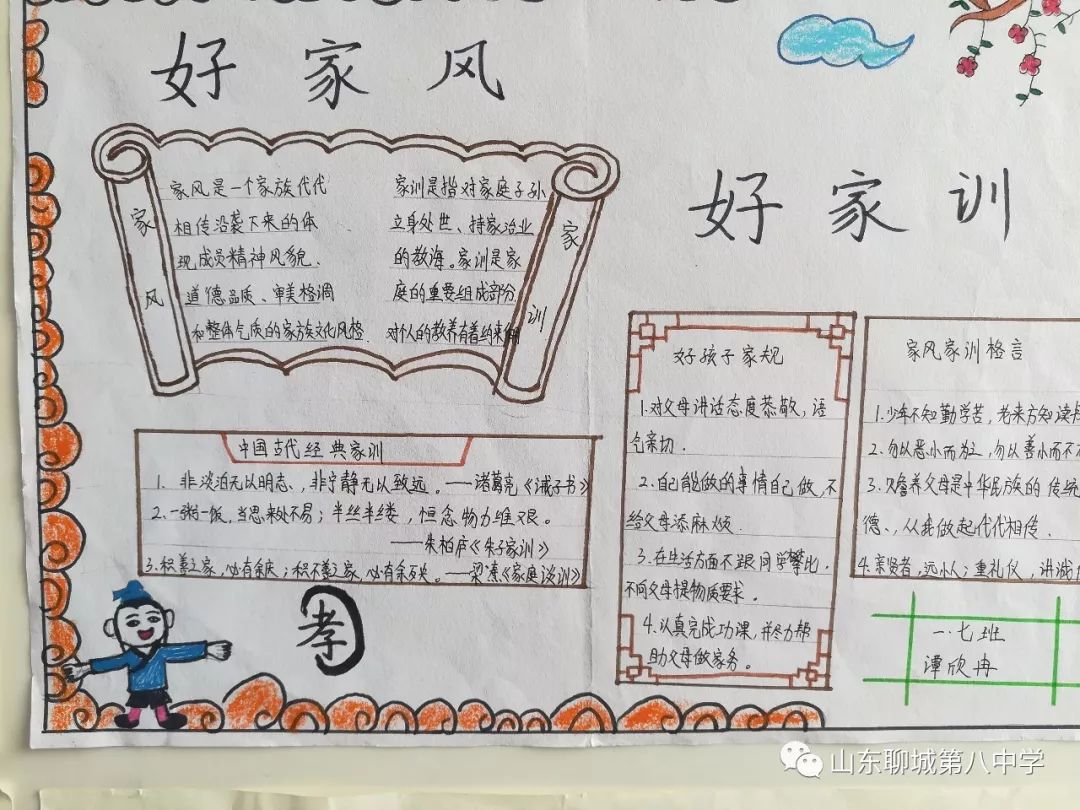 好家风
好家训
家风
家风是一个家族代代
相传沿袭下来的体
现成员精神风貌、
道德品质、审美格调
和整体气质的家族文化风格.
家训是指对家庭子孙
立身处世、持家治业
的教诲。家训是家
庭的重要组成部分
对个人的教养有着约束
家训
中国古代经典家训
1. 非淡泊无以明志、非宁静无以致远。——诸葛亮《诫子书》
2.一粥一饭,当思来处不易;半丝半缕,恒念物力维艰。
——朱柏庐《朱子家训》
3.积善之家,必有余庆;积不善之家,必有余殃。——梁《家庭谈训》
孝
好孩子家规
1.对父母讲话态度恭敬,语
气亲切.
2.自己能做的事情自己做,不
给父母添麻烦.
3.在生活方面不跟同学攀比,
不向父母提物质要求。
4.认真完成功课,并尽力帮
助父母做家务。
家风家训格言
1.少年不知勤学苦,老来方知读
2.勿以恶小而为之,勿以善小而不
3.赡养父母是中华民族的传统
德、从我做起代代相传.
4.亲贤者,远小人;重礼仪,讲诚
一.七班
谭欣冉
山东聊城第八中学